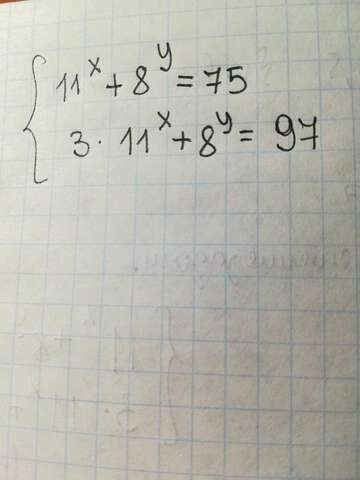 11^x + 8^y = 75
3 · 11^x + 8^y = 97